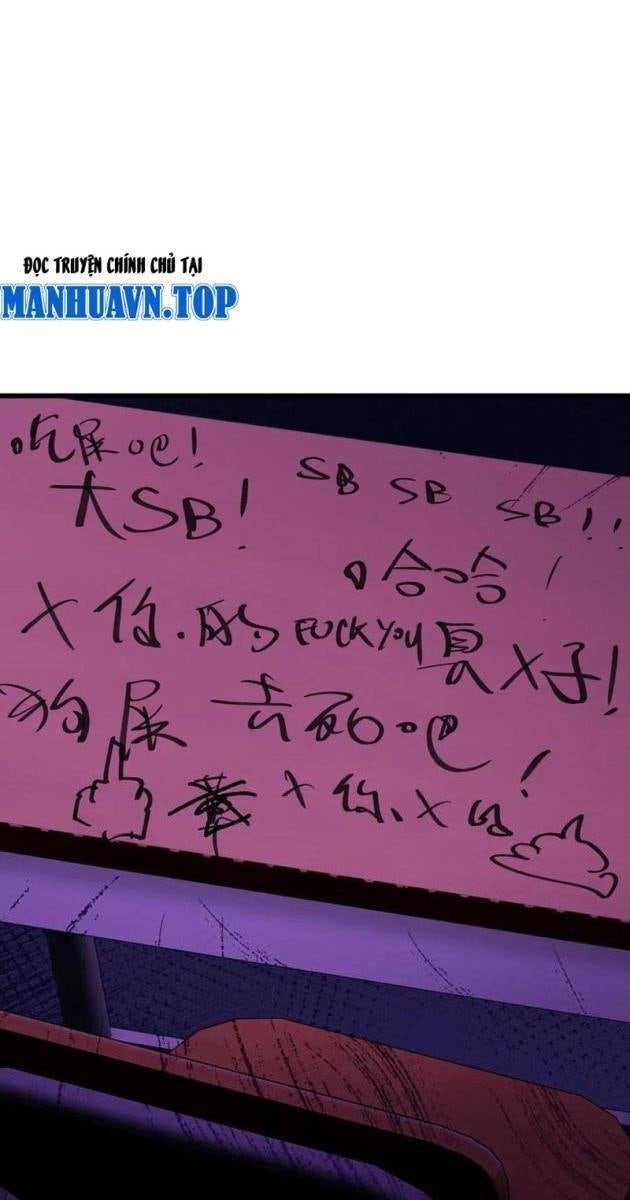 ĐỌC TRUYỆN CHÍNH CHỦ TẠI
MANHUAVN.TOP
吃屎吧!
SB SB SB!!
大SB!
哈哈!
X你的 FUCK YOU 真X子!
狗屎 去死吧!
X你、X你